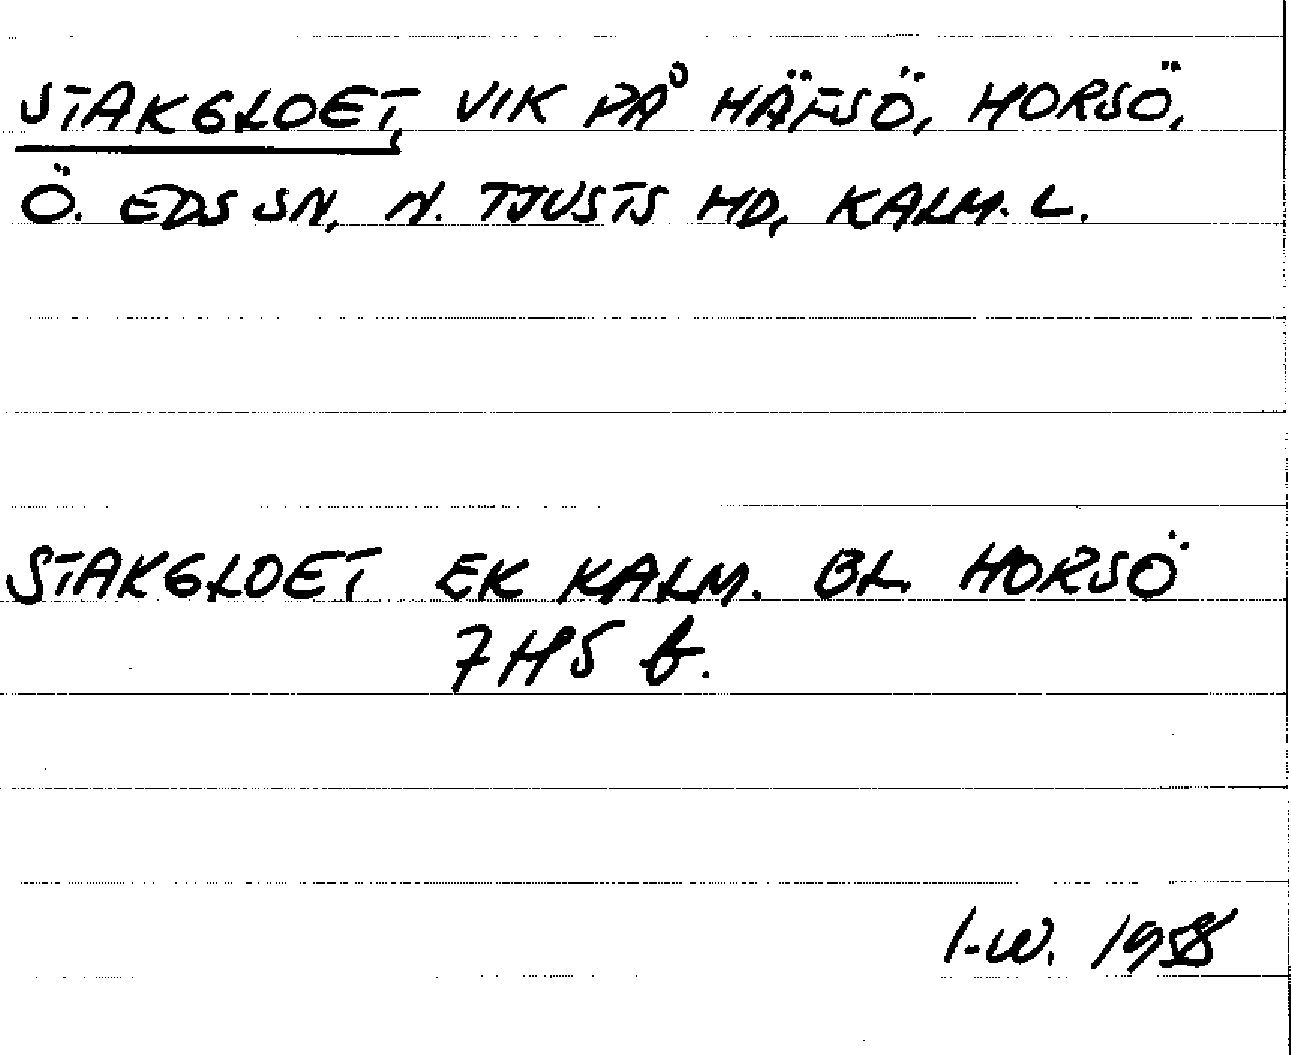 STAKGLOET, VIK PÅ HÄFSÖ, HORSÖ,
Ö. EDS SN, N. TJUSTS HD, KALM. L.
STAKGLOET EK KALM. BL. HORSÖ
7H5 b.
I-W. 1958